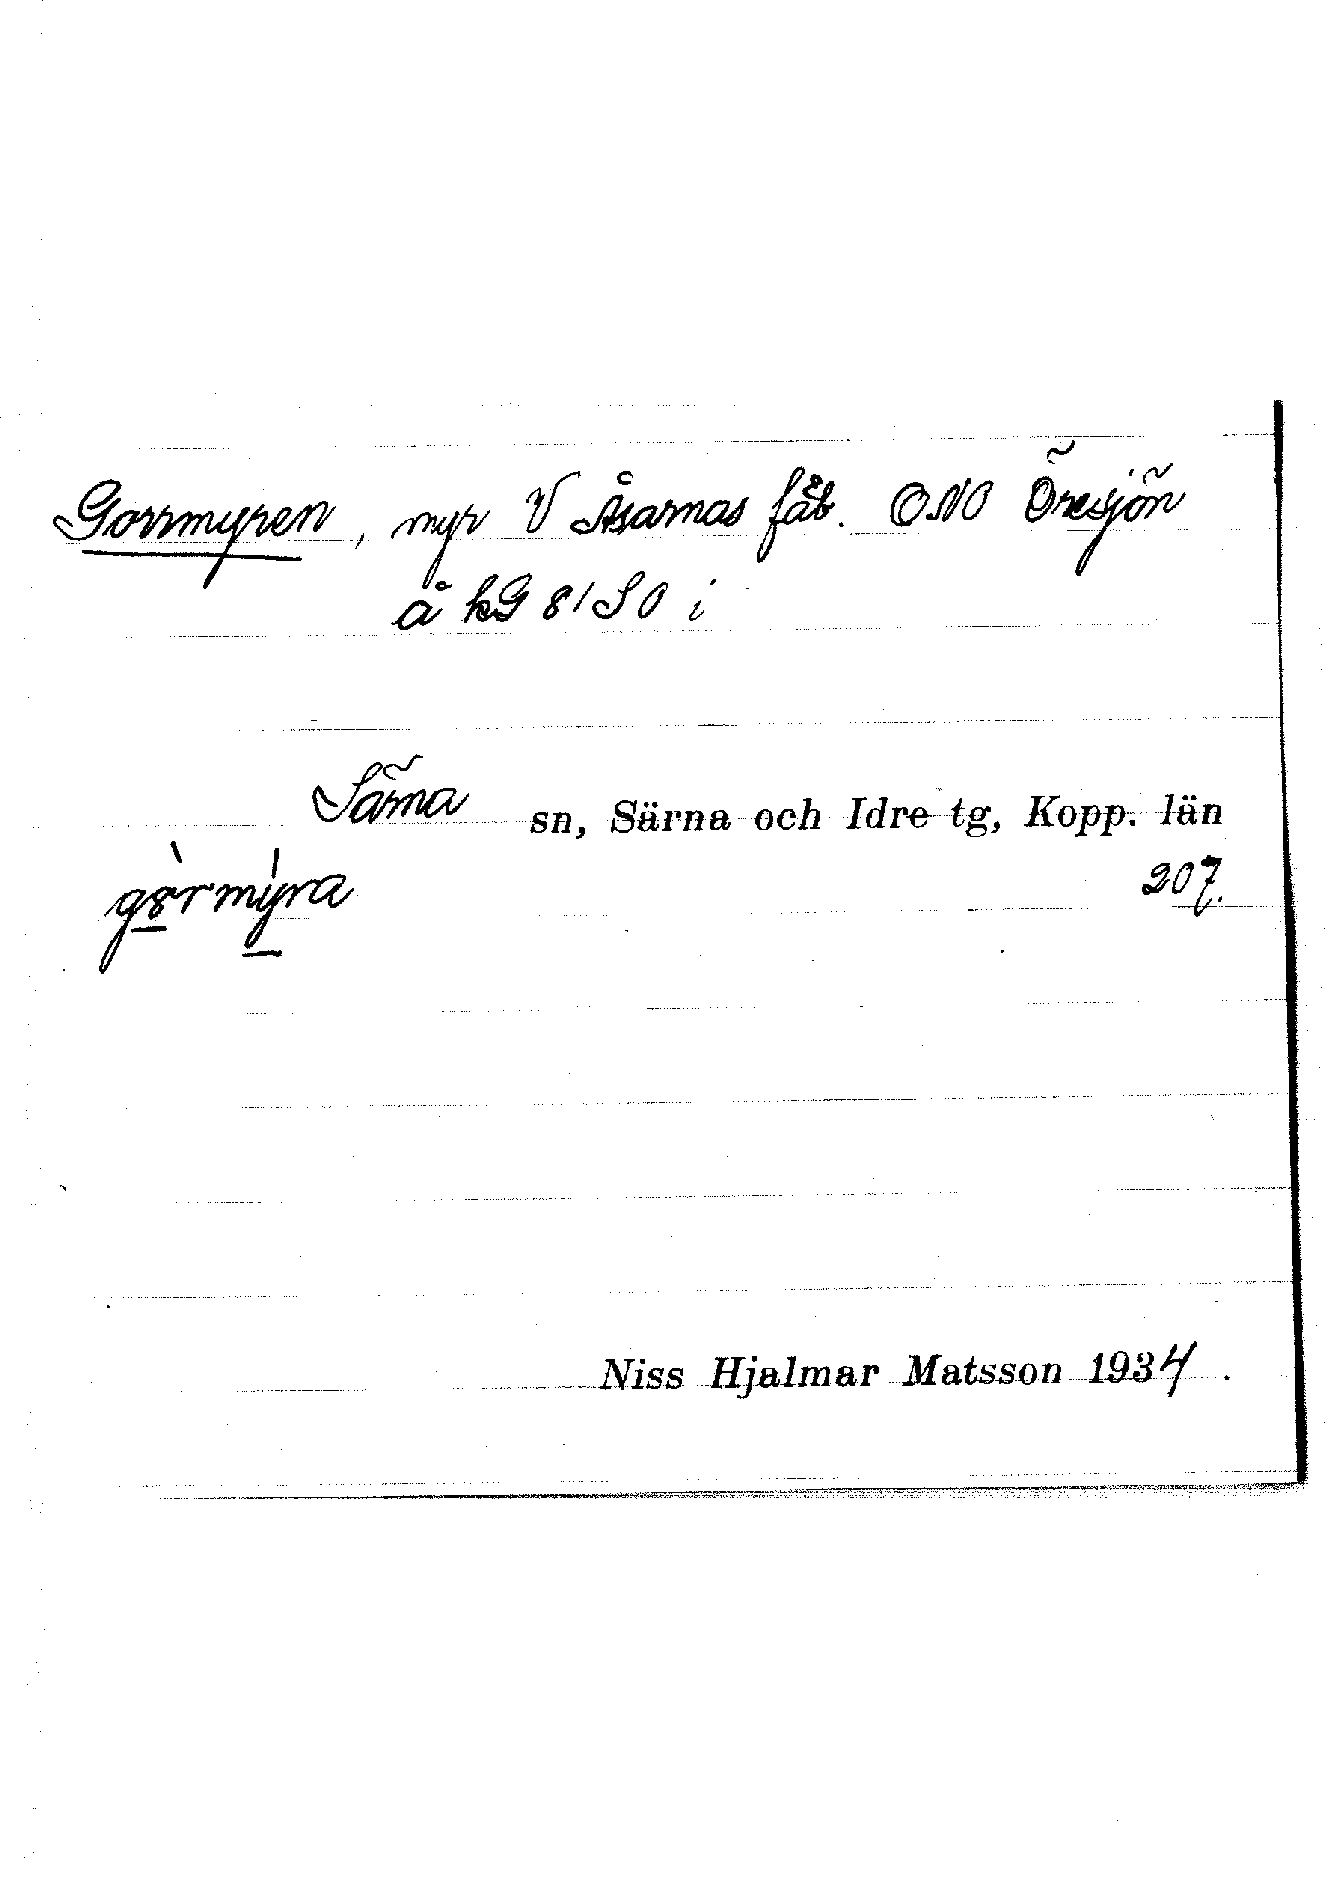 Gorrmyren, myr V Åsarnas fäb. ONO Öresjön
å kG 81 SO i
Särna sn, Särna och Idre tg, Kopp. län
207.
Niss Hjalmar Matsson 1934.